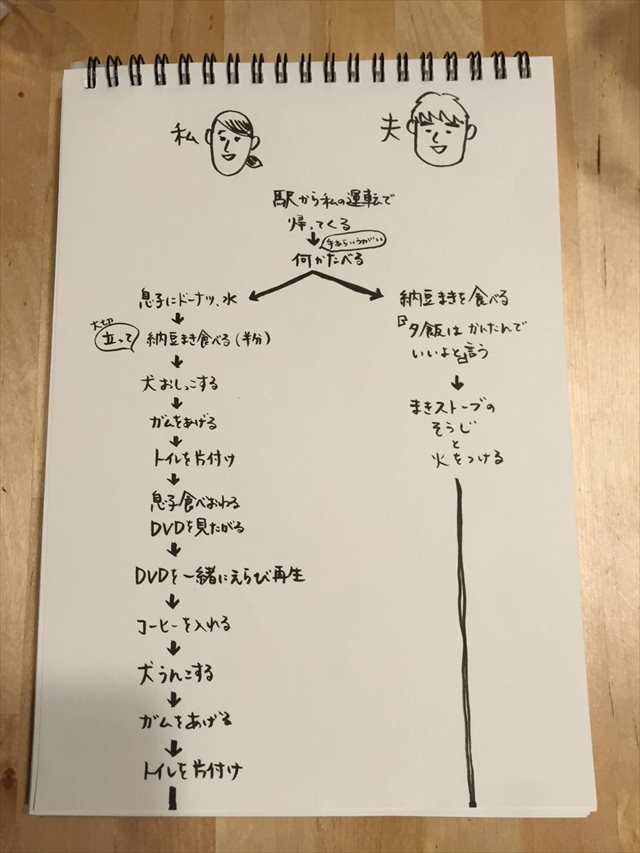 私
夫
駅から私の運転で
帰ってくる
手あらいうがい
何かたべる
息子にドーナツ、水
大切
立って
納豆まき食べる(半分)
犬おしっこする
ガムをあげる
トイレを片付け
息子食べおわる
DVDを見たがる
DVDを一緒にえらび再生
コーヒーを入れる
犬うんこする
ガムをあげる
トイレを片付け
納豆まきを食べる
『夕飯はかんたんで
いいよ』と言う
まきストーブの
そうじ
と
火をつける